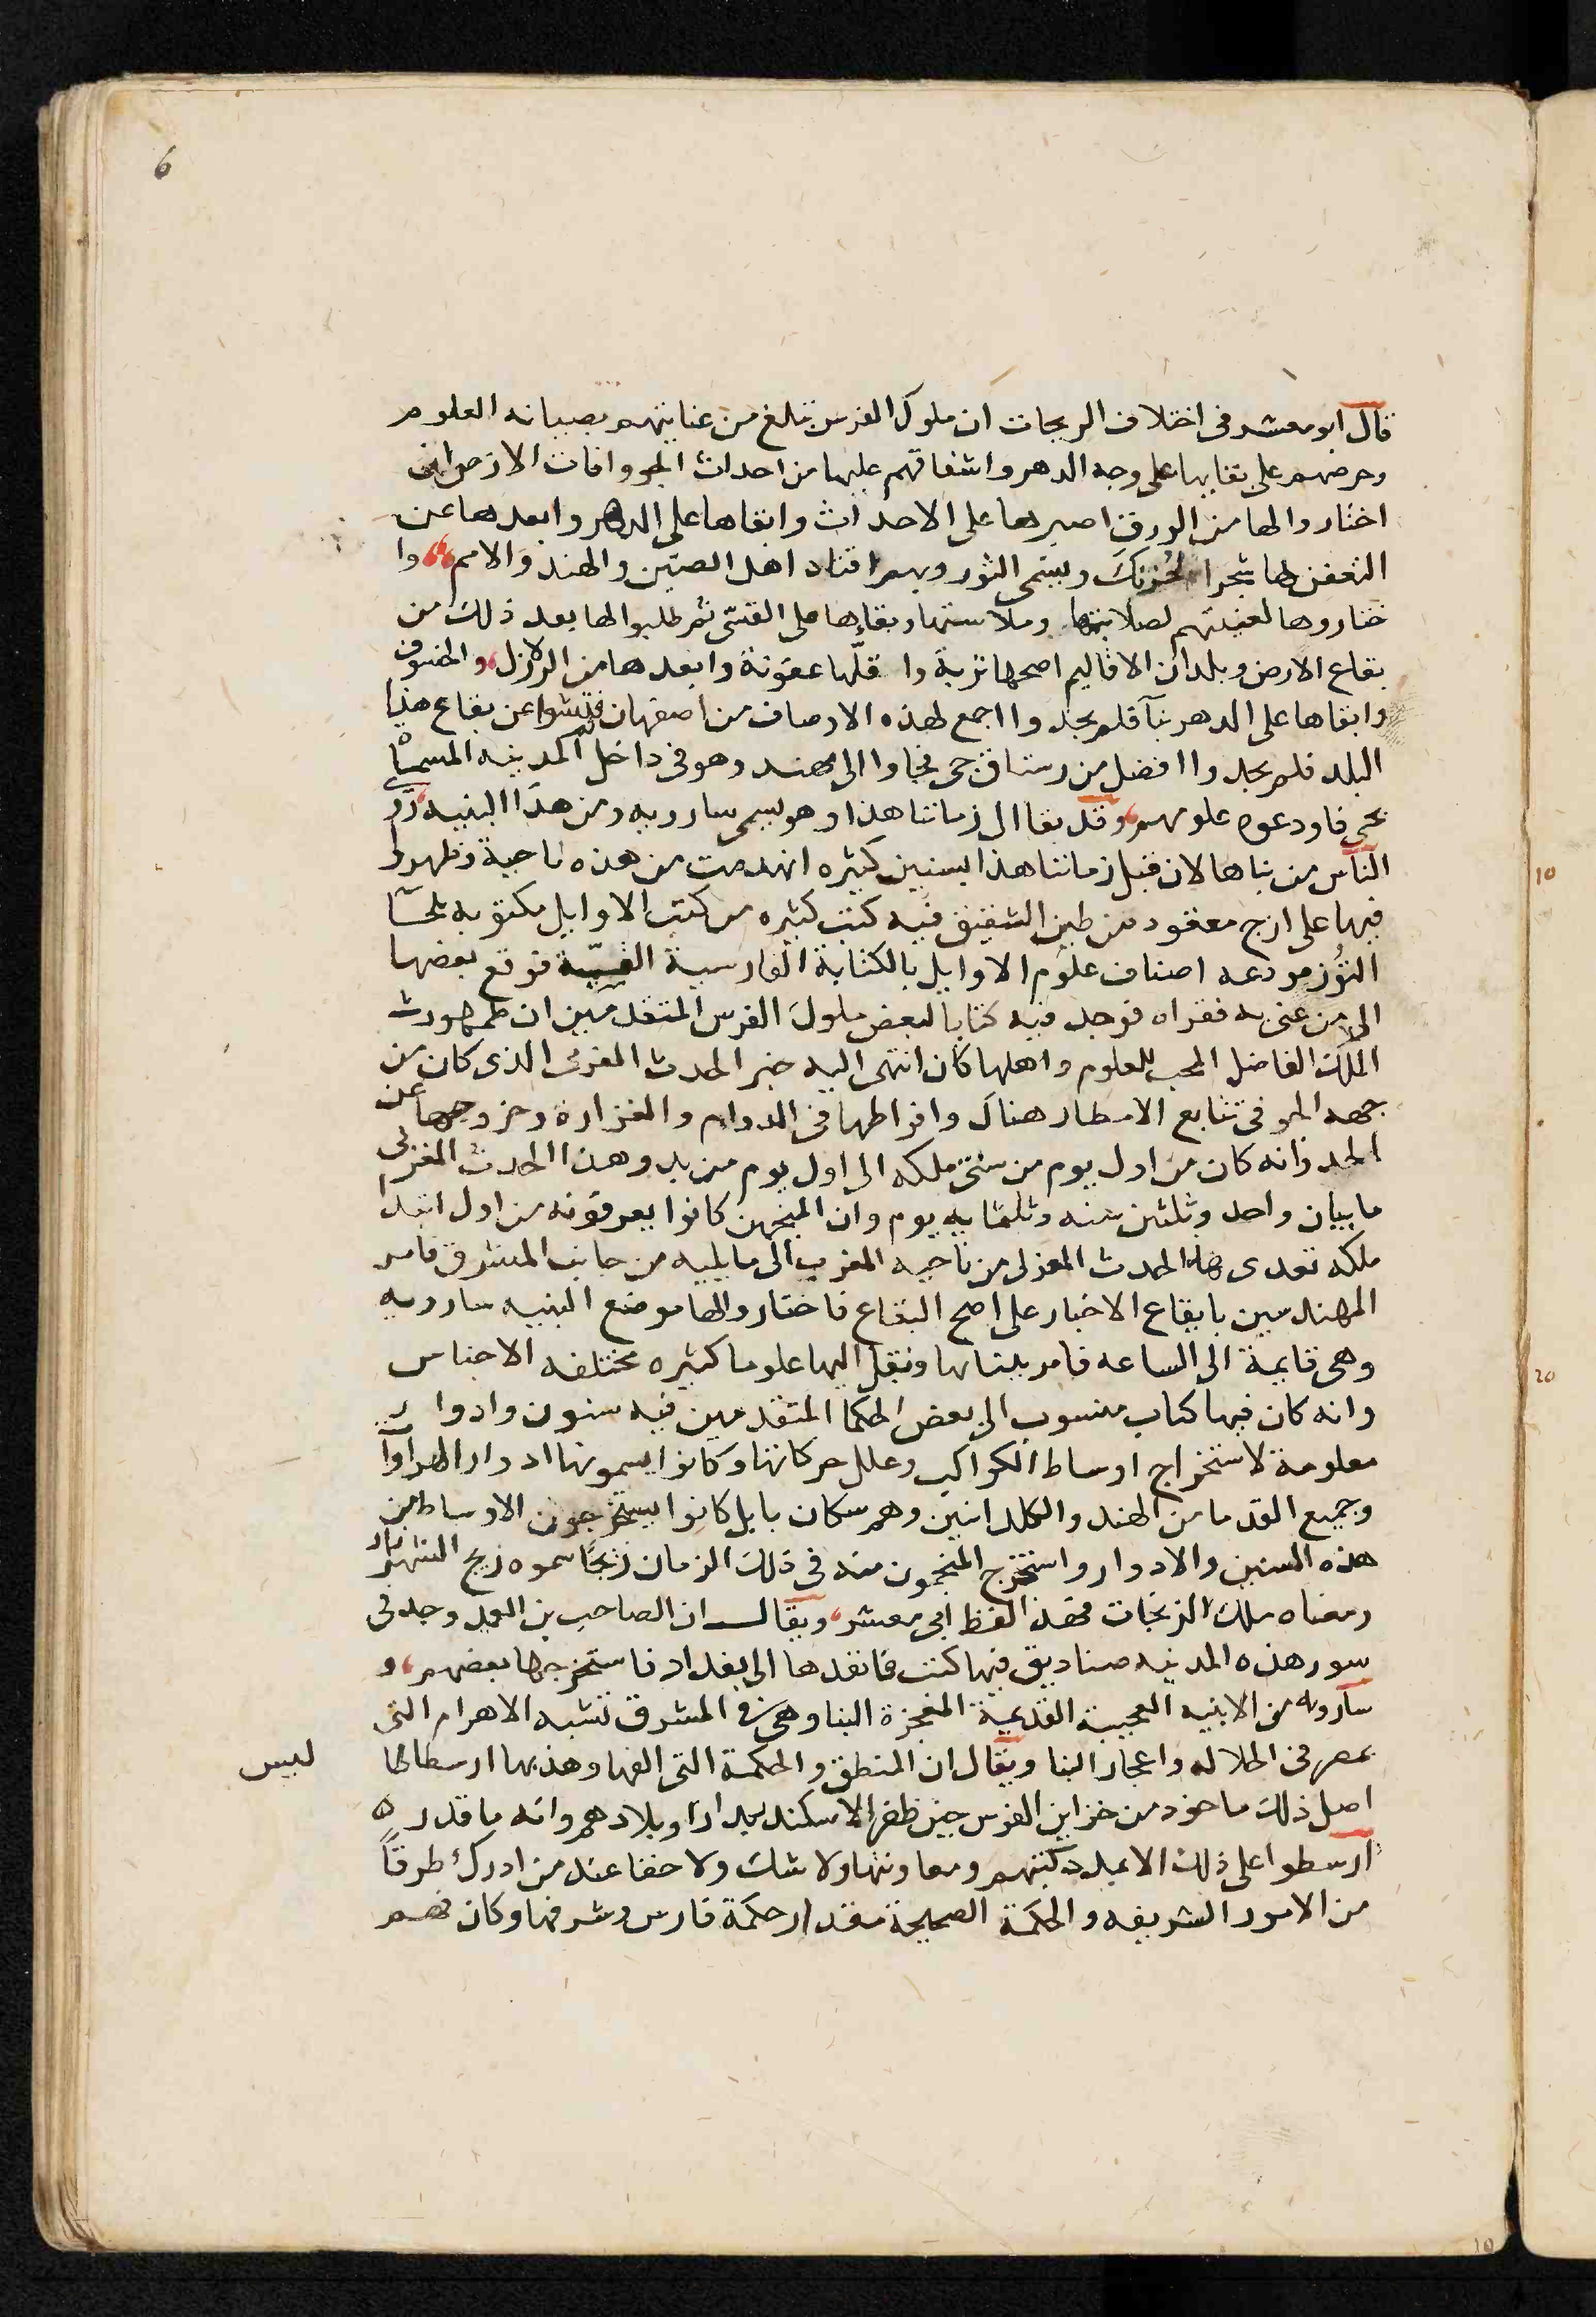 6
قال ابو معشر فى اختلاف الزيجات ان ملوك الفرس بتلغ من عنايتهم بصيانه العلوم
وحرصهم على بقايها على وجه الدهر واشفاقهم عليها من احداث الجو وافات الارض ان
اختار والها من الورق اصبرها على الاحداث وابقاها على الدهر وابعدها عن
التعفن لها شجرا لخزنك ويسمى التوز وبهم اقتاد اهل الصين والهند والامم وا
ختاروها لقسيهم لصلابتها وملاستها وبقاءها على القسى ثم طلبوا لها بعد ذلك من
بقاع الارض وبلدان الاقاليم اصحها تربة وا قلها عفونة وابعدها من الزلازل والخسوف
وابقاها على الدهر بنآ فلم يجد وااجمع لهذه الاوصاف من اصفهان ثم فتشوا عن بقاع هذا
البلد فلم يجد واافضل من رستاق جى فجاوا الى مهند وهو فى داخل المدينه المسماة
بجى فاودعوه علومهم وقد بقا الى زماننا هذا وهو يسمى سارويه ومن هذا البنيه درى
الناس من بناها لان قبل زماننا هذا بسنين كثيره انهدمت من هذه ناحية وظهروا
فيها على ازج معقود من طين الشقيق فيه كتب كثيره من كتب الاوايل مكتوبه بلحآ
التوز مودعه اصناف علوم الاوايل بالكتابة الفارسية القديمة فوقع بعضها
الى من عنى به فقراه فوجد فيه كتابا لبعض ملوك الفرس المتقدمين ان طمهورث
الملك الفاضل المحب للعلوم واهلها كان انتهى اليه خبر الحدث المغربى الذى كان من
جهه الجو فى تتابع الامطار هناك وافراطها فى الدوام والغزارة وخروجها عن
الحد وانه كان من اول يوم من سنى ملكه الى اول يوم من بدو هذا الحدث المغربى
مايتان واحد وثلثين سنه وثلثمايه يوم وان المنجمين كانوا يعرفونه من اول ابتدا
ملكه تعدى هذا الحدث المغربى من ناحيه المغرب الى ما يليه من جانب المشرق فامر
المهندسين بايقاع الاختيار على اصح البقاع فاختار والها موضع البنيه سارويه
وهى قايمة الى الساعه فامر ببنايها ونقل اليها علوما كثيره مختلفه الاجناس
وانه كان فيها كتاب منسوب الى بعض الحكما المتقدمين فيه سنون وادوار
معلومة لاستخراج اوساط الكواكب وعلل حركاتها وكانوا يسمونها ادوار الهزآرا
وجميع القدما من الهند والكلدانيين وهم سكان بابل كانوا يستخرجون الاوساط من
هذه السنين والادوار واستخرج المنجمون منه فى ذلك الزمان زيجا سموه زيج الشهريار
ومعناه ملك الزيجات فهذا لفظ ابى معشر ويقال ان الصاحب بن العميد وجد فى
سور هذه المدينه صناديق فيها كتب فانفدها الى بغداد فاستخرجها بعضهم و
سارويه من الابنيه العجيبة القديمة المعجزة البنا وهى فى المشرق تشبه الاهرام التى
بمصر فى الجلاله واعجاز البنا ويقال ان المنطق والحكمة التى الفها وهذبها ارسطاطا
ليس
اصل ذلك ماخوذ من خزاين الفرس حين ظفر الاسكندر بدارا وبلادهم وانه ما قدر ه
ارسطوا على ذلك الا بمدد كتبهم ومعاونتها ولا شك ولا خفا عند من ادرك طرفاً
من الامور الشريفه والحكمة الصحيحة مقدار حكمة فارس وشرفها وكان فهم
10
20
10